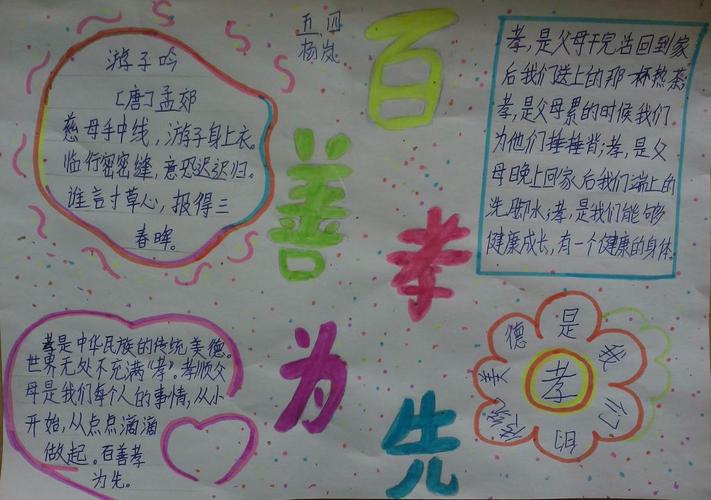 五四
杨岚
百善孝为先
游子吟
[唐]孟郊
慈母手中线，游子身上衣。
临行密密缝，意恐迟迟归。
谁言寸草心，报得三
春晖。
孝，是父母干完活回到家
后我们送上的那一杯热茶
孝，是父母累的时候我们
为他们捶捶背；孝，是父
母晚上回家后我们端上的
洗脚水；孝，是我们能够
健康成长，有一个健康的身体
孝是中华民族的传统美德。
世界无处不充满“孝”。孝顺父
母是我们每个人的事情，从小
开始，从点点滴滴
做起。百善孝
为先。
孝
是我们的传统美德